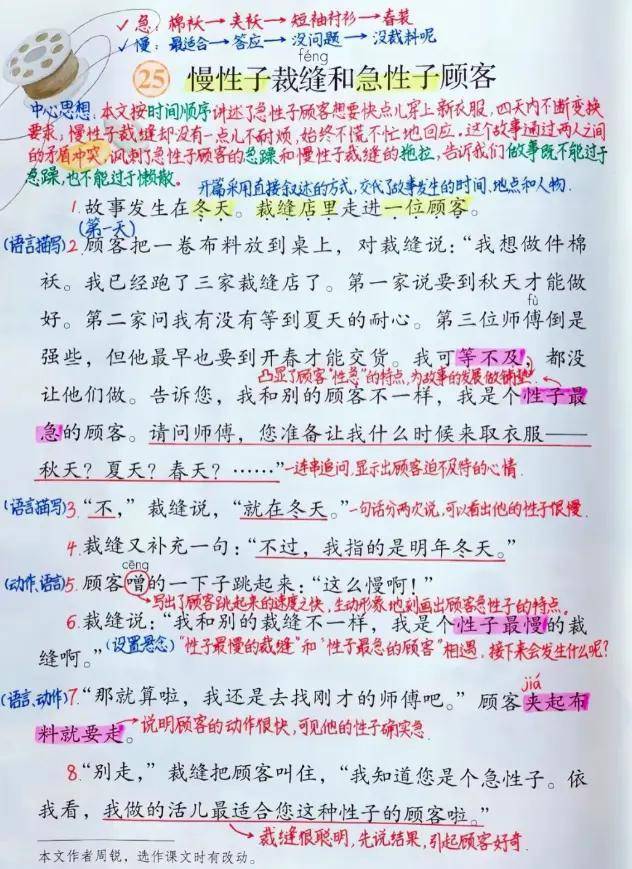 ✓急: 棉袄→夹袄→短袖衬衫→春装
✓慢: 最适合→答应→没问题→没裁料呢
féng
25 慢性子裁缝和急性子顾客
中心思想:本文按时间顺序讲述了急性子顾客想要快点儿穿上新衣服,四天内不断变换
要求,慢性子裁缝却没有一点儿不耐烦,始终不慌不忙地回应。这个故事通过两人之间
的矛盾冲突,讽刺了急性子顾客的急躁和慢性子裁缝的拖拉,告诉我们做事既不能过于
急躁,也不能过于懒散。
开篇采用直接叙述的方式,交代了故事发生的时间、地点和人物.
1.故事发生在冬天。裁缝店里走进一位顾客。
(第一天)
(语言描写)2.顾客把一卷布料放到桌上,对裁缝说:“我想做件棉
袄。我已经跑了三家裁缝店了。第一家说要到秋天才能做
fù
好。第二家问我有没有等到夏天的耐心。第三位师傅倒是
强些,但他最早也要到开春才能交货。我可等不及,都没
凸显了顾客“性急”的特点,为故事的发展做铺垫.
让他们做。告诉您,我和别的顾客不一样,我是个性子最
急的顾客。请问师傅,您准备让我什么时候来取衣服——
秋天?夏天?春天?……”一连串追问,显示出顾客迫不及待的心情.
(语言描写)3.“不,”裁缝说,“就在冬天。”一句话分两次说,可以看出他的性子很慢.
4.裁缝又补充一句:“不过,我指的是明年冬天。”
cēng
(动作、语言)5.顾客噌的一下子跳起来:“这么慢啊!”
写出了顾客跳起来的速度之快,生动形象地刻画出顾客急性子的特点。
6.裁缝说:“我和别的裁缝不一样,我是个性子最慢的裁
缝啊。”(设置悬念)“性子最慢的裁缝”和“性子最急的顾客”相遇,接下来会发生什么呢?
jiá
(语言、动作)7.“那就算啦,我还是去找刚才的师傅吧。”顾客夹起布
料就要走。说明顾客的动作很快,可见他的性子确实急.
8.“别走,”裁缝把顾客叫住,“我知道您是个急性子。依
我看,我做的活儿最适合您这种性子的顾客啦。”
裁缝很聪明,先说结果,引起顾客好奇.
本文作者周锐,选作课文时有改动。